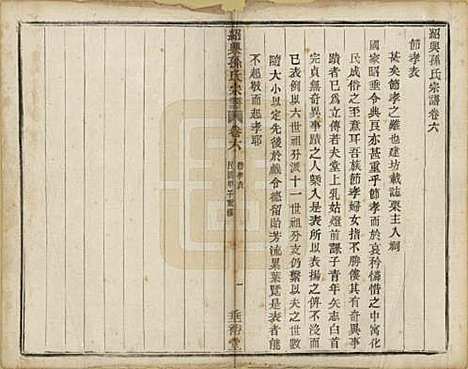 紹興孫氏宗譜卷六
節孝表
甚矣節孝之難也建坊載誌崇主人祠
國家昭垂令典良亦甚重乎節孝而於哀矜憐惜之中寓化
民成俗之至意耳吾族節孝婦女指不勝僂其有奇異事
蹟者已爲立傳若夫堂上乳姑燈前課子青年矢志白首
完貞無奇異事蹟之人槩入是表所以表揚之傳不沒而
已表例以六世祖分派十一世祖分支仍繫以夫之世次
隨大小以定先後於戲令德留貽芳流奕葉覽是表者能
不起敬而起孝耶
紹興孫氏宗譜 卷六 節孝表 一 垂裕堂
民國甲子重修